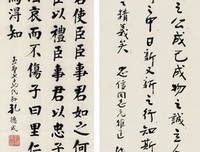 之公成己成物之誠主人
之申日新又新之行知斯
之積義矣
忠信同志
君使臣臣事君如之何
臣以禮臣事君以忠子
哀而不傷子曰里仁
為得知
孔德成